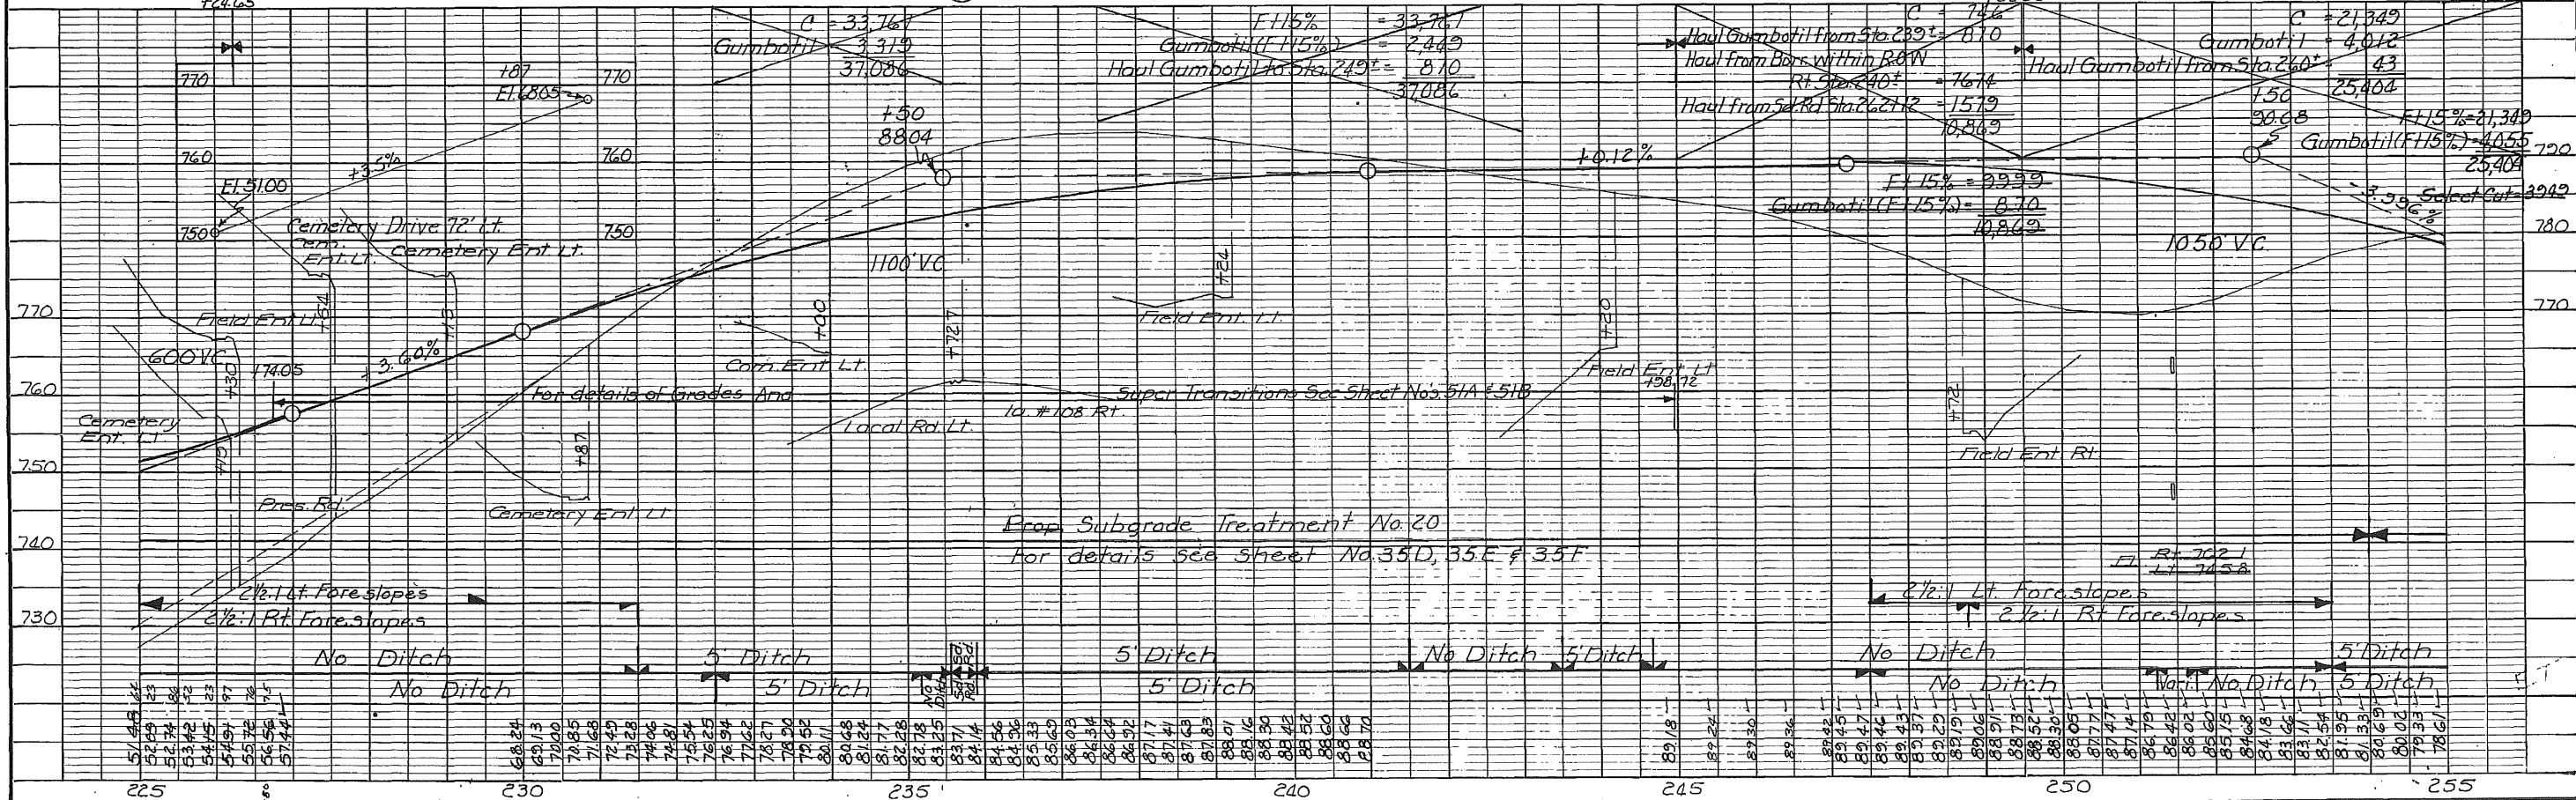 +24.65
C = 33,767
Gumbotil 3,319
37,086
F+15% = 33,767
Gumbotil (F+15%) = 2,449
Haul Gumbotil to Sta. 249± = 870
37,086
C = 746
Haul Gumbotil from Sta. 239± = 870
Haul from Borr. within R.O.W
Rt. Sta. 240± = 7674
Haul from Sd. Rd. Sta. 262+12 = 1579
10,869
C = 21,349
Gumbotil = 4,012
Haul Gumbotil from Sta. 260± 43
25,404
+50
90.68
F+15% = 21,349
Gumbotil (F+15%) = 4055
25,404
Select Cut = 3949
-3.996%
770
+87
El. 68.05
770
+50
88.04
760
+3.5%
760
+0.12%
790
El. 51.00
F+15% = 9999
Gumbotil (F+15%) = 870
10,869
750
Cemetery Drive 72' Lt.
750
780
Cem. Ent. Lt.
Cemetery Ent. Lt.
1100' V.C.
1050' V.C.
+24
770
Field Ent. Lt.
+64
+13
+00
+72.7
Field Ent. Lt.
+20
770
600' V.C.
+74.05
+3.60%
Com. Ent. Lt.
Field Ent. Lt.
+98.72
760
+30
For details of Grades And
Super Transitions See Sheet No's. 51A & 51B
+72
Cemetery
Ent. Lt.
Ia. #108 Rt.
Local Rd. Lt.
+15
+87
750
Field Ent. Rt.
Pres. Rd.
Cemetery Ent. Lt.
Prop. Subgrade Treatment No. 20
740
For details see sheet No. 35D, 35E & 35F
Fl. Rt. 762.1
Lt. 745.8
2½:1 Lt. Foreslopes
2½:1 Lt. Foreslopes
730
2½:1 Rt. Foreslopes
2½:1 Rt. Foreslopes
No Ditch
5' Ditch
Sd. Rd.
5' Ditch
No Ditch
5' Ditch
No Ditch
5' Ditch
No Ditch
5' Ditch
No Ditch
Sd. Rd.
5' Ditch
No Ditch
No Ditch
5' Ditch
57.44
68.24
69.13
70.00
70.85
71.68
72.49
73.28
74.06
74.81
75.54
76.25
76.94
77.62
78.27
78.90
79.52
80.11
80.68
81.24
81.77
82.28
82.78
83.25
83.71
84.14
84.56
84.96
85.33
85.69
86.03
86.34
86.64
86.92
87.17
87.41
87.63
87.83
88.01
88.16
88.30
88.42
88.52
88.60
88.66
88.70
89.18
89.24
89.30
89.36
89.42
89.45
89.47
89.46
89.43
89.37
89.29
89.19
89.06
88.91
88.73
88.52
88.30
88.05
87.77
87.47
87.14
86.79
86.42
86.02
85.60
85.15
84.68
84.18
83.66
83.11
82.54
81.95
81.33
80.69
80.02
79.33
78.61
225
230
235
240
245
250
255